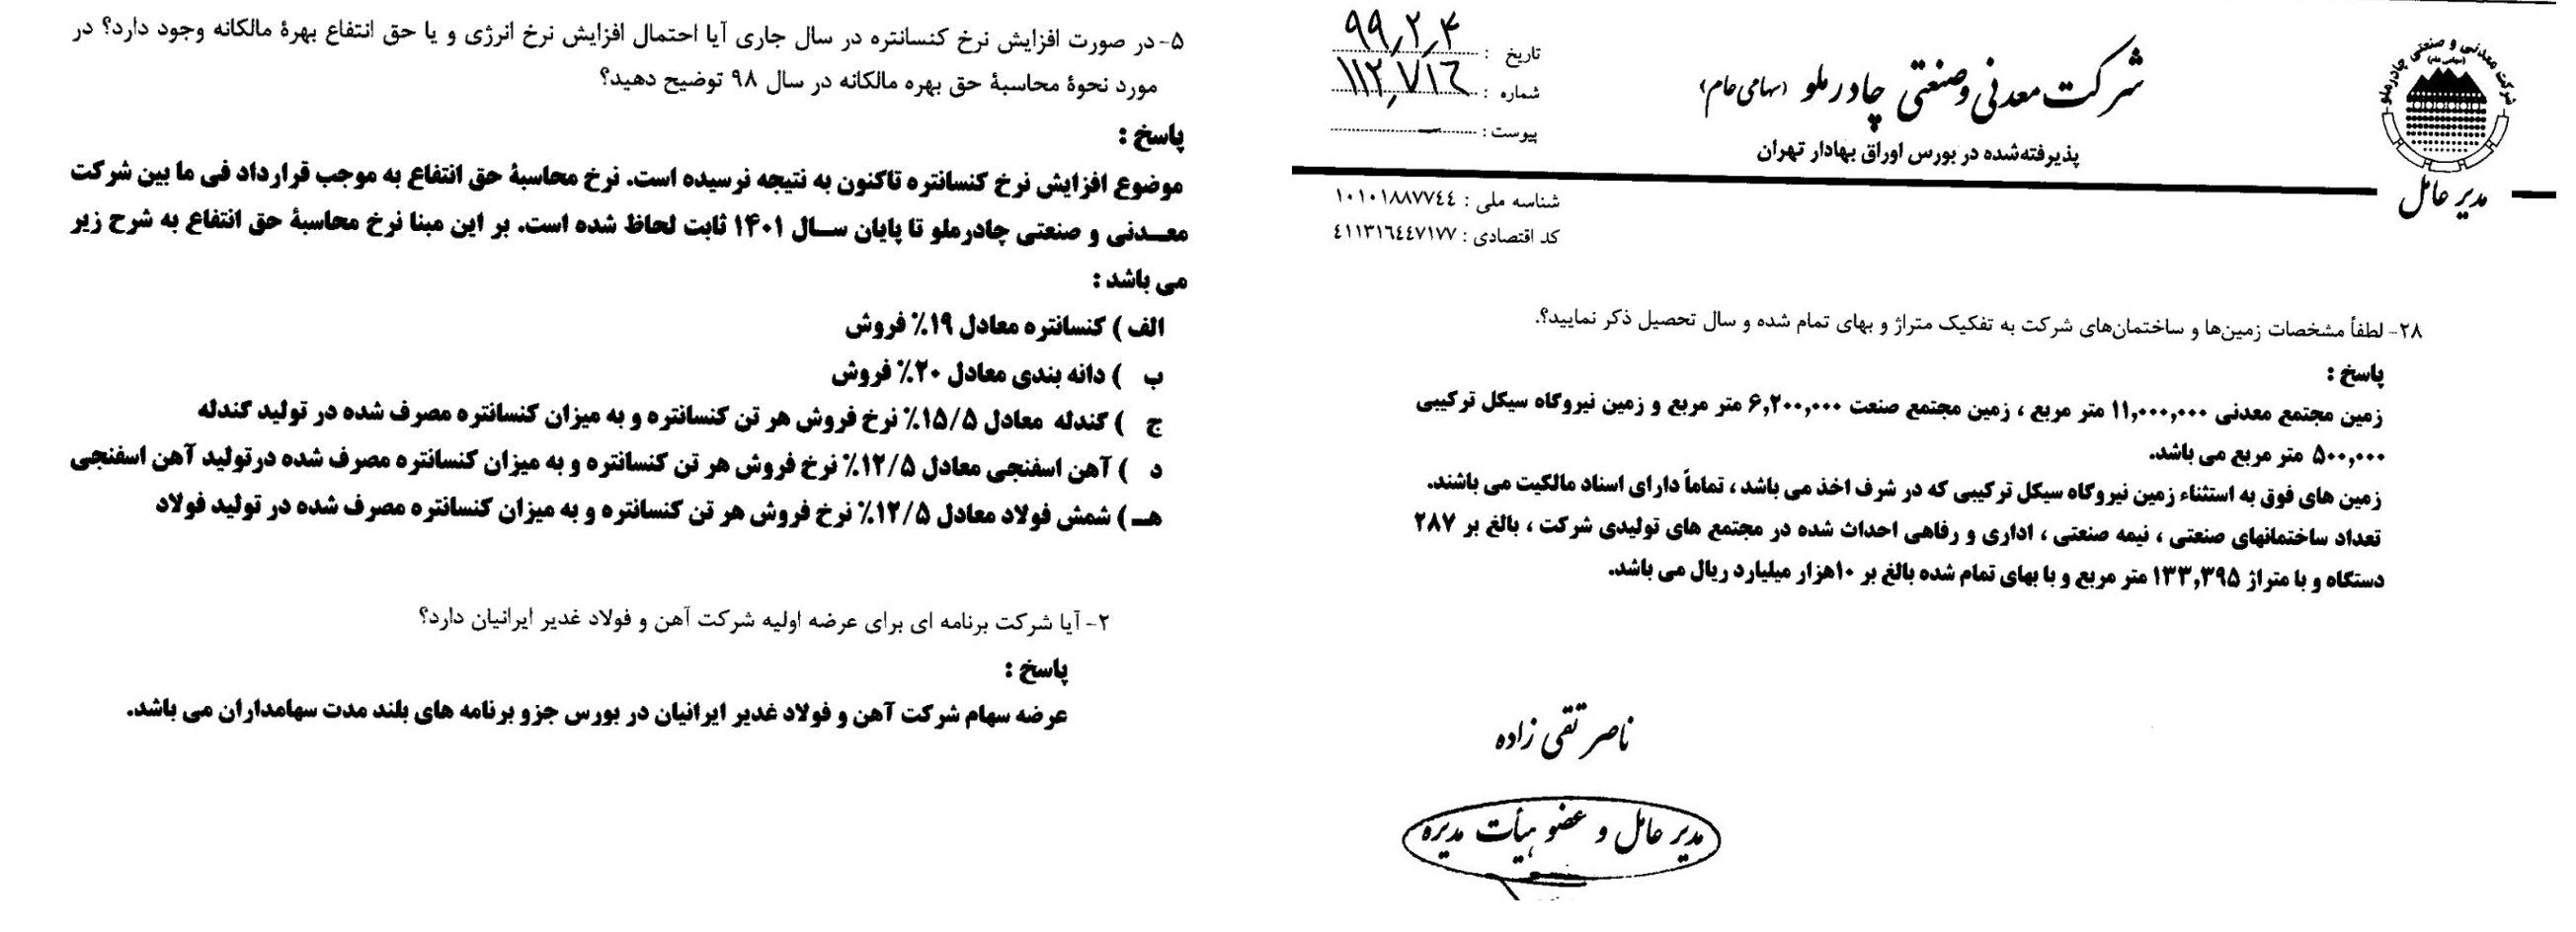 شرکت معدنی و صنعتی چادرملو
(سهامی عام)
شرکت معدنی و صنعتی چادرملو (سهامی عام)
پذیرفته‌شده در بورس اوراق بهادار تهران
مدیر عامل
تاریخ : ۹۹٫۲٫۴
شماره : ۱۱۲٫۷۱۶
پیوست : –
شناسه ملی : ۱۰۱۰۱۸۸۷۷٤٤
کد اقتصادی : ٤۱۱۳۱٦٤٤۷۱۷۷
۲۸- لطفاً مشخصات زمین‌ها و ساختمان‌های شرکت به تفکیک متراژ و بهای تمام شده و سال تحصیل ذکر نمایید؟.
پاسخ :
زمین مجتمع معدنی ۱۱,۰۰۰,۰۰۰ متر مربع ، زمین مجتمع صنعت ۶,۲۰۰,۰۰۰ متر مربع و زمین نیروگاه سیکل ترکیبی
۵۰۰,۰۰۰ متر مربع می باشد.
زمین های فوق به استثناء زمین نیروگاه سیکل ترکیبی که در شرف اخذ می باشد ، تماماً دارای اسناد مالکیت می باشند.
تعداد ساختمانهای صنعتی ، نیمه صنعتی ، اداری و رفاهی احداث شده در مجتمع های تولیدی شرکت ، بالغ بر ۲۸۷
دستگاه و با متراژ ۱۳۳,۳۹۵ متر مربع و با بهای تمام شده بالغ بر ۱۰هزار میلیارد ریال می باشد.
ناصر تقی زاده
مدیر عامل و عضو هیأت مدیره
۵- در صورت افزایش نرخ کنسانتره در سال جاری آیا احتمال افزایش نرخ انرژی و یا حق انتفاع بهرهٔ مالکانه وجود دارد؟ در
مورد نحوهٔ محاسبهٔ حق بهره مالکانه در سال ۹۸ توضیح دهید؟
پاسخ :
موضوع افزایش نرخ کنسانتره تاکنون به نتیجه نرسیده است. نرخ محاسبهٔ حق انتفاع به موجب قرارداد فی ما بین شرکت
معـــدنی و صنعتی چادرملو تا پایان ســـال ۱۴۰۱ ثابت لحاظ شده است. بر این مبنا نرخ محاسبهٔ حق انتفاع به شرح زیر
می باشد :
الف ) کنسانتره معادل ۱۹٪ فروش
ب ) دانه بندی معادل ۲۰٪ فروش
ج ) گندله معادل ۱۵/۵٪ نرخ فروش هر تن کنسانتره و به میزان کنسانتره مصرف شده در تولید گندله
د ) آهن اسفنجی معادل ۱۲/۵٪ نرخ فروش هر تن کنسانتره و به میزان کنسانتره مصرف شده درتولید آهن اسفنجی
هـ ) شمش فولاد معادل ۱۲/۵٪ نرخ فروش هر تن کنسانتره و به میزان کنسانتره مصرف شده در تولید فولاد
۲- آیا شرکت برنامه ای برای عرضه اولیه شرکت آهن و فولاد غدیر ایرانیان دارد؟
پاسخ :
عرضه سهام شرکت آهن و فولاد غدیر ایرانیان در بورس جزو برنامه های بلند مدت سهامداران می باشد.